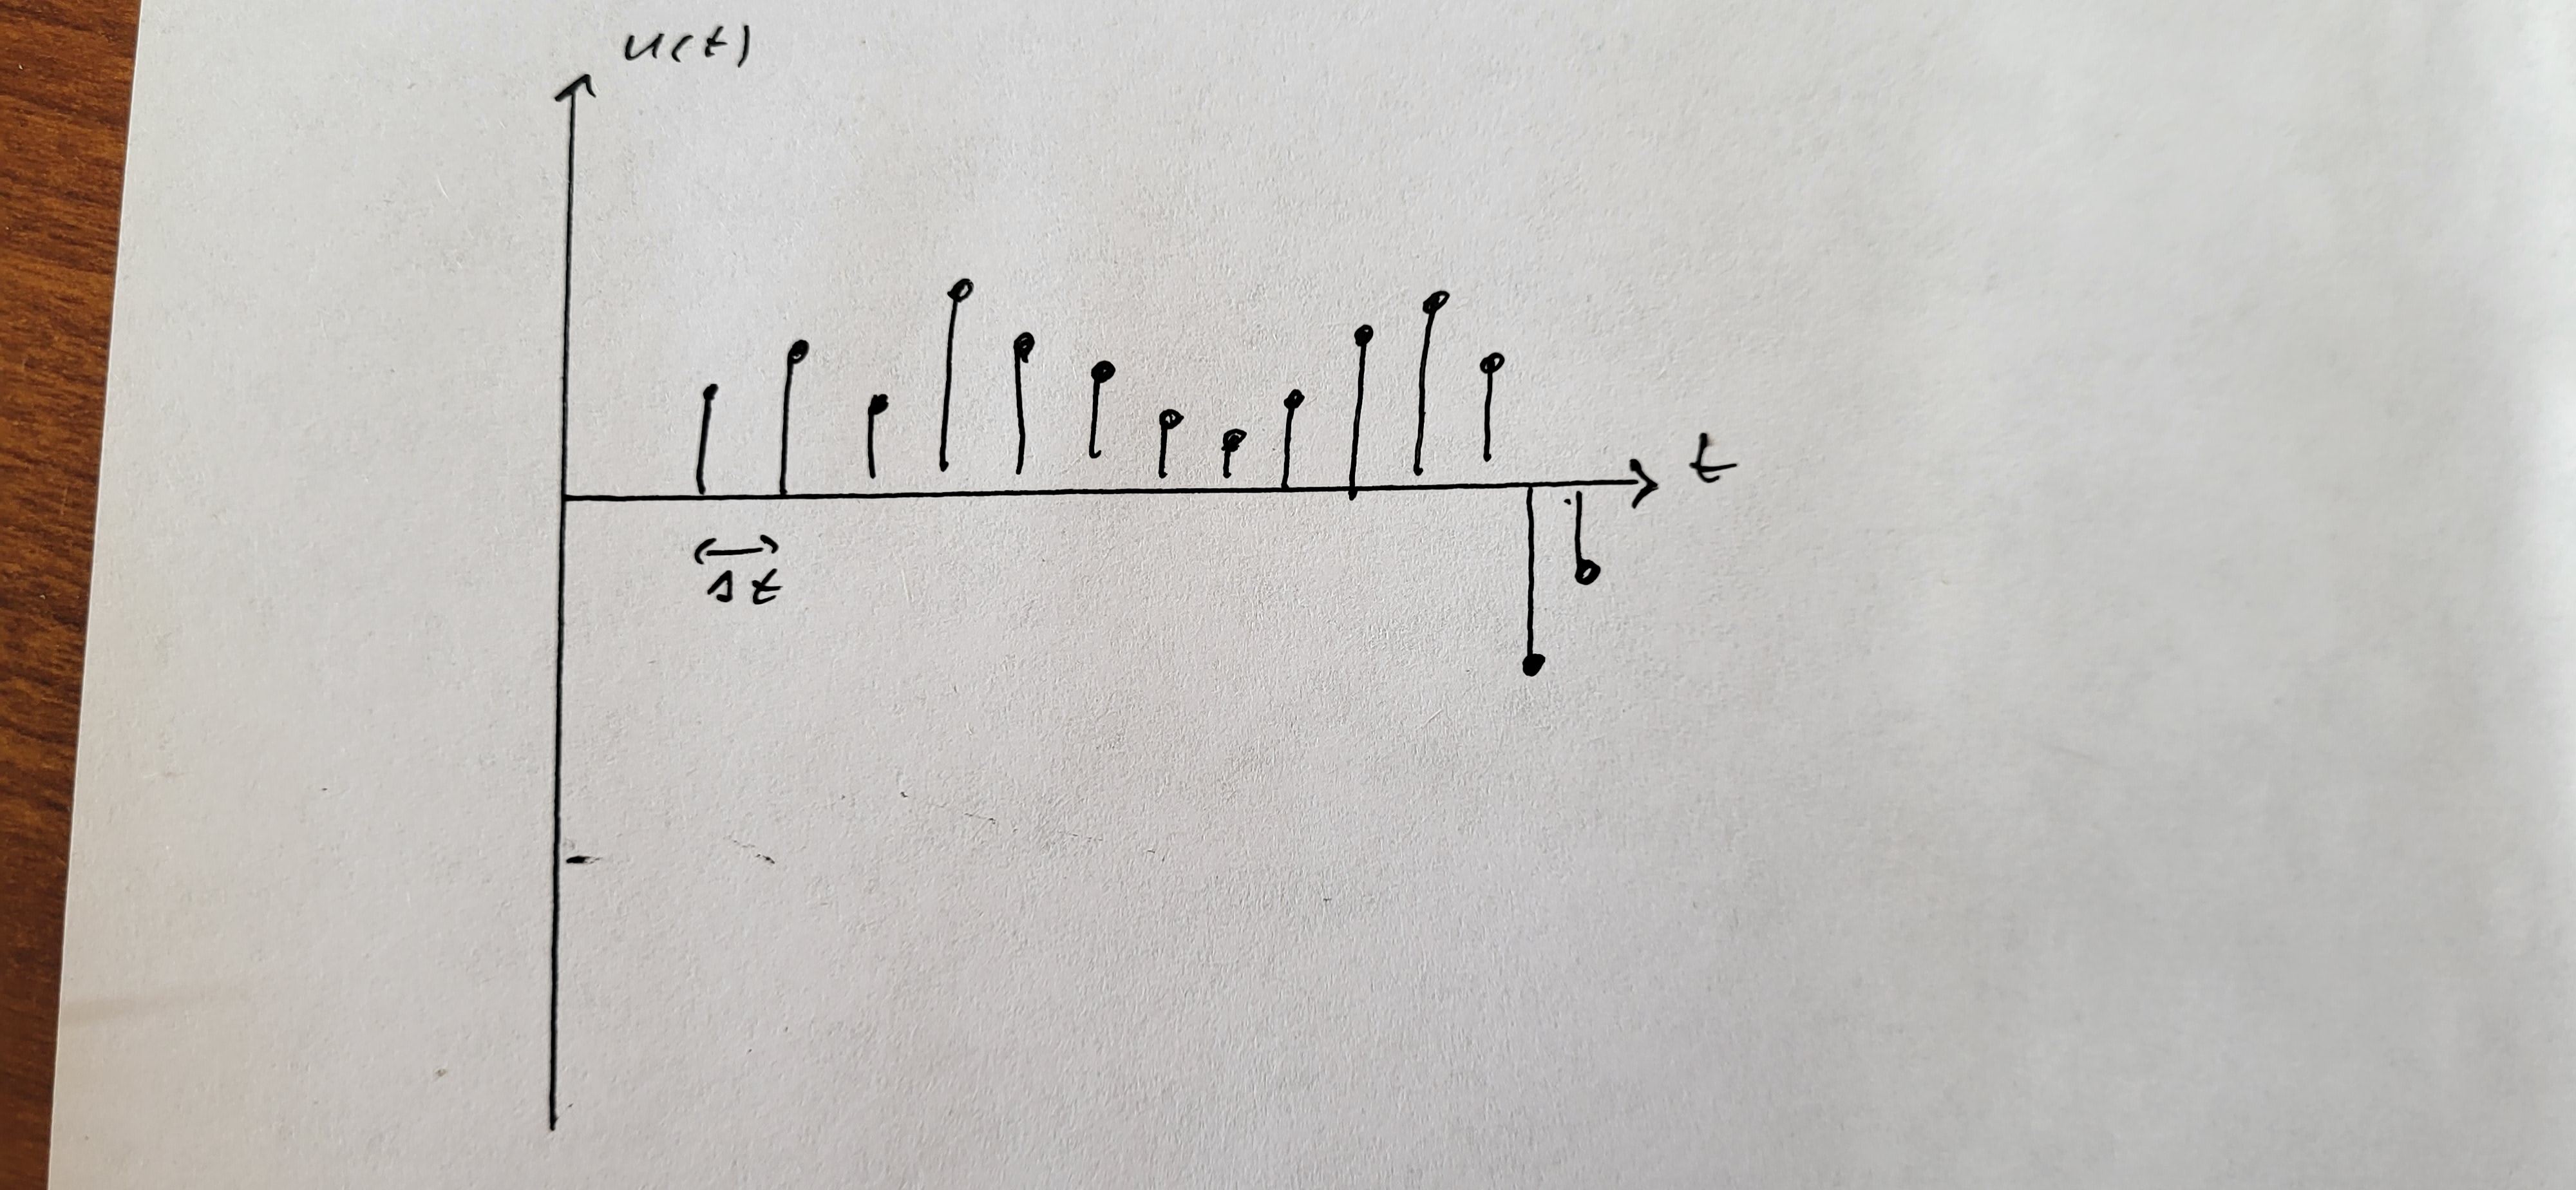 u(t)
t
Δt